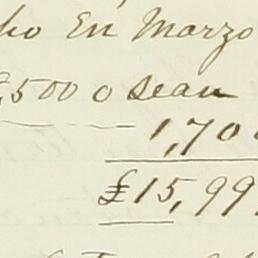 ho En Marzo
,500 o sean
1,70
£15,99